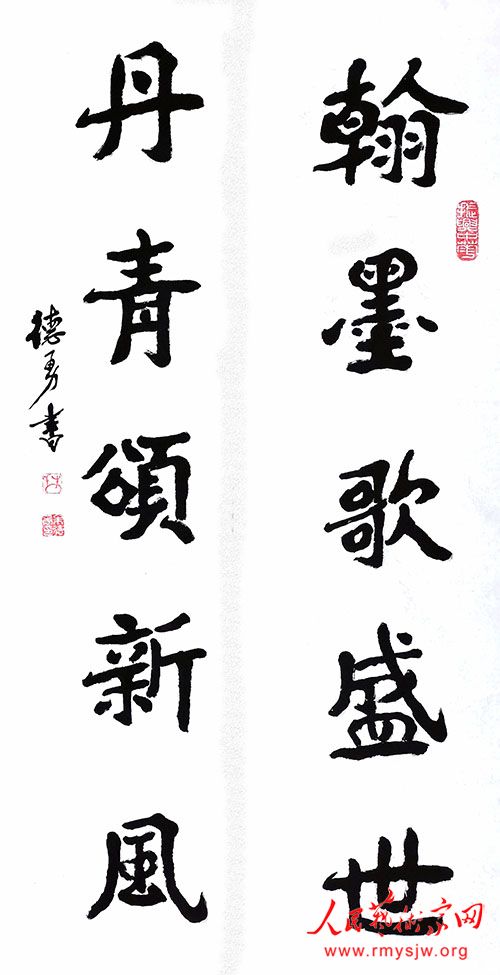 翰墨歌盛世
丹青頌新風
德勇書
人民藝術家网
www.rmysjw.org